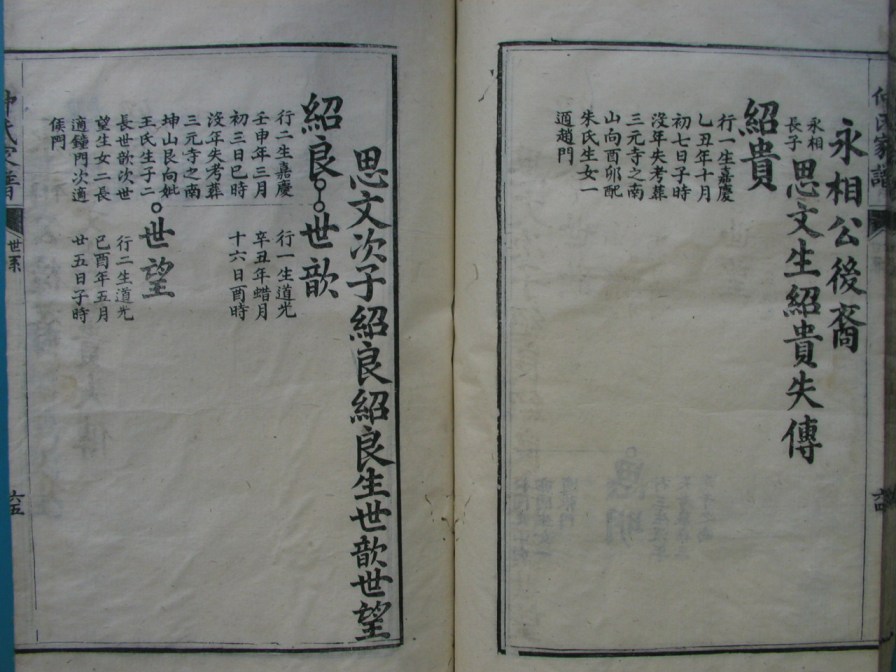 氏家譜
六四
永相公後裔
永相
長子
思文生紹貴失傳
紹貴
行一生嘉慶
乙丑年十月
初七日子時
沒年失考葬
三元寺之南
山向酉卯配
朱氏生女一
適趙門
思文次子紹良紹良生世歆世望
紹良
行二生嘉慶
壬申年三月
初三日巳時
沒年失考葬
三元寺之南
坤山艮向妣
王氏生子二
長世歆次世
望生女二長
適鐘門次適
侯門
世歆
行一生道光
辛丑年蜡月
十六日酉時
世望
行二生道光
己酉年五月
廿五日子時
氏家譜
世系
六五